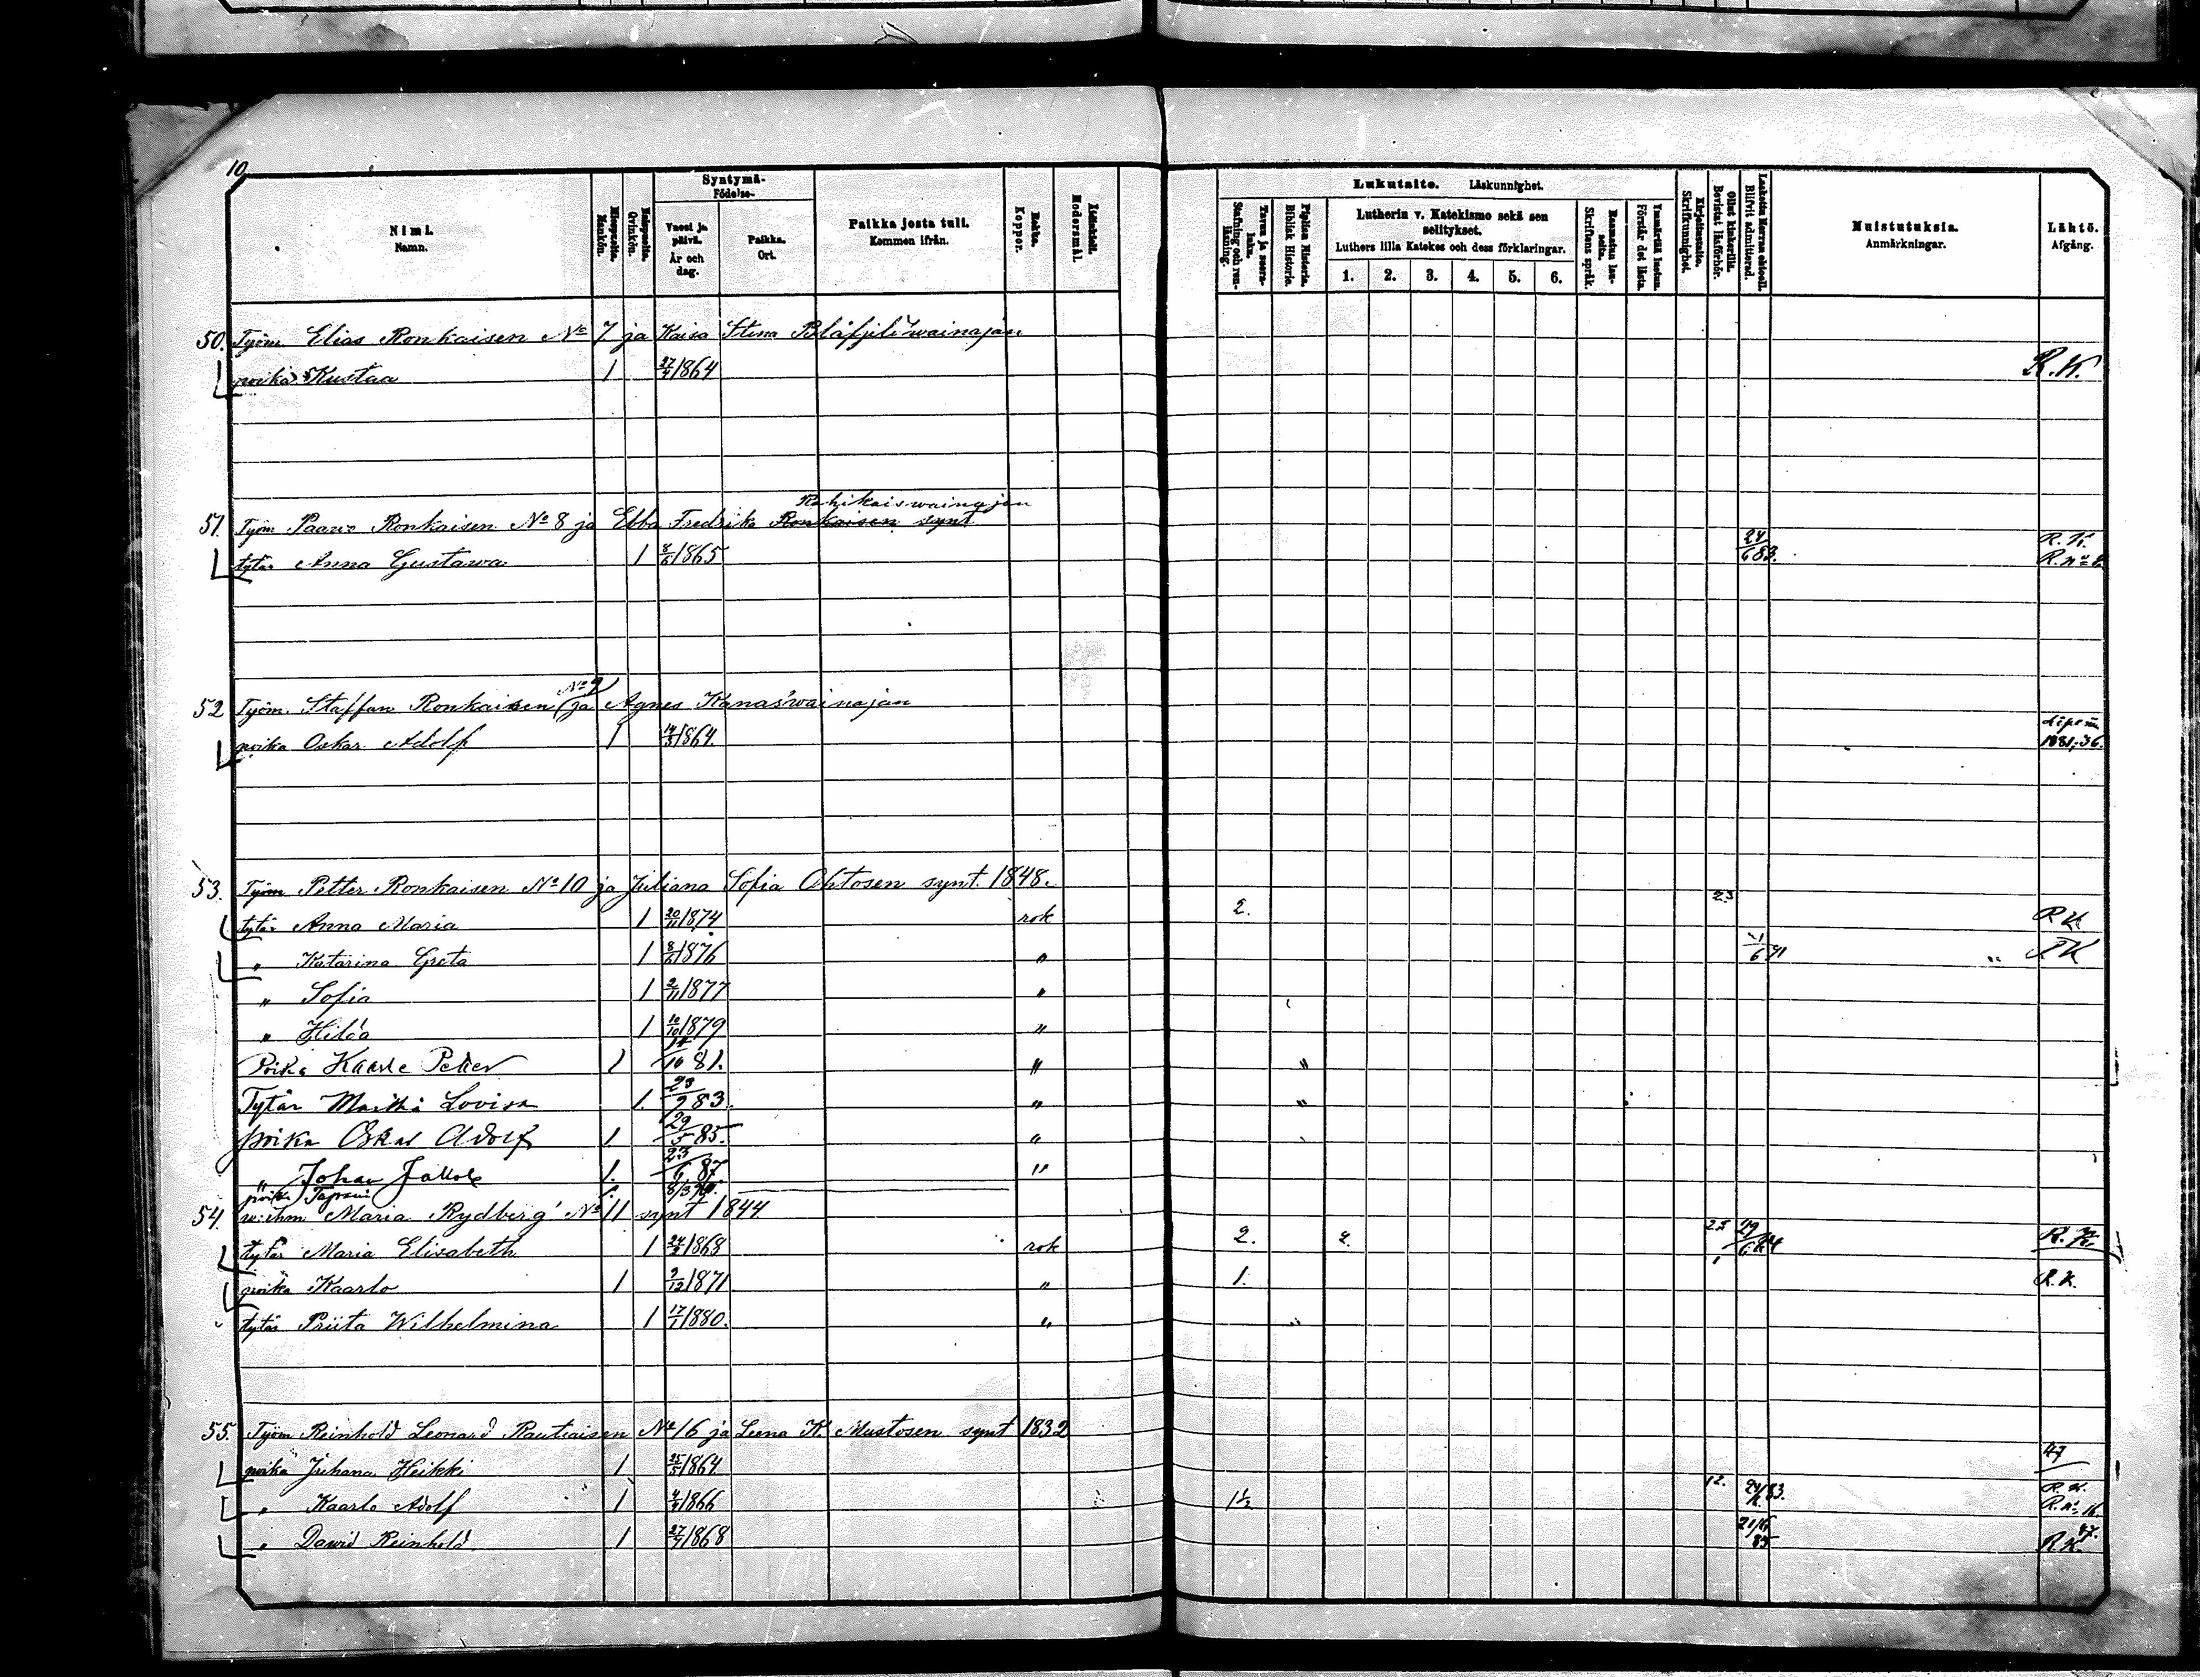 10
Nimi. Namn.
Miespuolia. Mankön.
Naispuolia. Qvinkön.
Syntymä- Födelse-
Vuosi ja päivä. År och dag.
Paikka. Ort.
Paikka josta tuli. Kommen ifrån.
Rokko. Koppor.
Modersmål.
Lukutaito. Läskunnighet.
Lutherin v. Katekismo sekä sen selitykset.
Luthers lilla Katekes och dess förklaringar.
1. 2. 3. 4. 5. 6.
Biblisk Historie.
Skriftens språk.
Förstår det lästa.
Kirjoitustaito. Skrifkunnighet.
Bevistat läsförhör.
Blifvit admitterad.
Muistutuksia. Anmärkningar.
Lähtö. Afgång.
50. Työm Elias Ronkaisen No 7 ja Kaisa Stina wainajan
poika Kustaa 1 27/4 1864 R.K.
Rahikais wainajan
51. Työm Paavo Ronkaisen No 8 ja Ebba Fredrika Ronkaisen synt
tytär Anna Gustawa 1 8/6 1865 24/6 83. R.K. R. no 8
52 Työm. Staffan Ronkaisen No 9 ja Agnes Kanas' wainajan
poika Oskar Adolf 1 14/3 1864. 1881, 36.
53. Työm Petter Ronkaisen No 10 ja Juliana Sofia Ahtosen synt. 1848.
tytär Anna Maria 1 20/11 1874 rok 2. 23 RK
" Katarina Greta 1 8/6 1876 " 6 91 RK
" Sofia 1 2/11 1877 "
" Hilda 1 10/10 1879 "
Poika Kaarle Petter 1 10 81. " "
Tytär Martha Lovisa 1. 23/9 83. " "
poika Oskar Adolf 1 29/5 85. "
" Johan Jakob 1. 23/6 87 "
poika Tapani 1.
54. Maria Rydberg' No 11 synt 1844
tytär Maria Elisabeth 1 1868 rok 2. 2. 19/6 84 R.K.
poika Kaarlo 1 9/12 1871 " 1. R.K.
tytär Priita Wilhelmina 1 17/1 1880. " "
55. Työm Reinhold Leonard Rautiaisen No 16 ja Leena K. Mustosen synt 1832
poika Juhana Heikki 1 25/5 1864 47
" Kaarlo Adolf 1 1866 1½ 12. 24/6 83. R.K. R. no 16
" Dawid Reinhold 1 27/4 1868 21/6 85 R.K. 47.